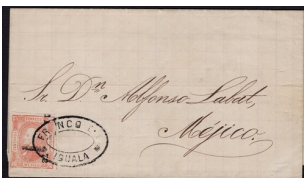 Sr. Dn. Alfonso Labat,
Méjico.
FRANCO
IGUALA